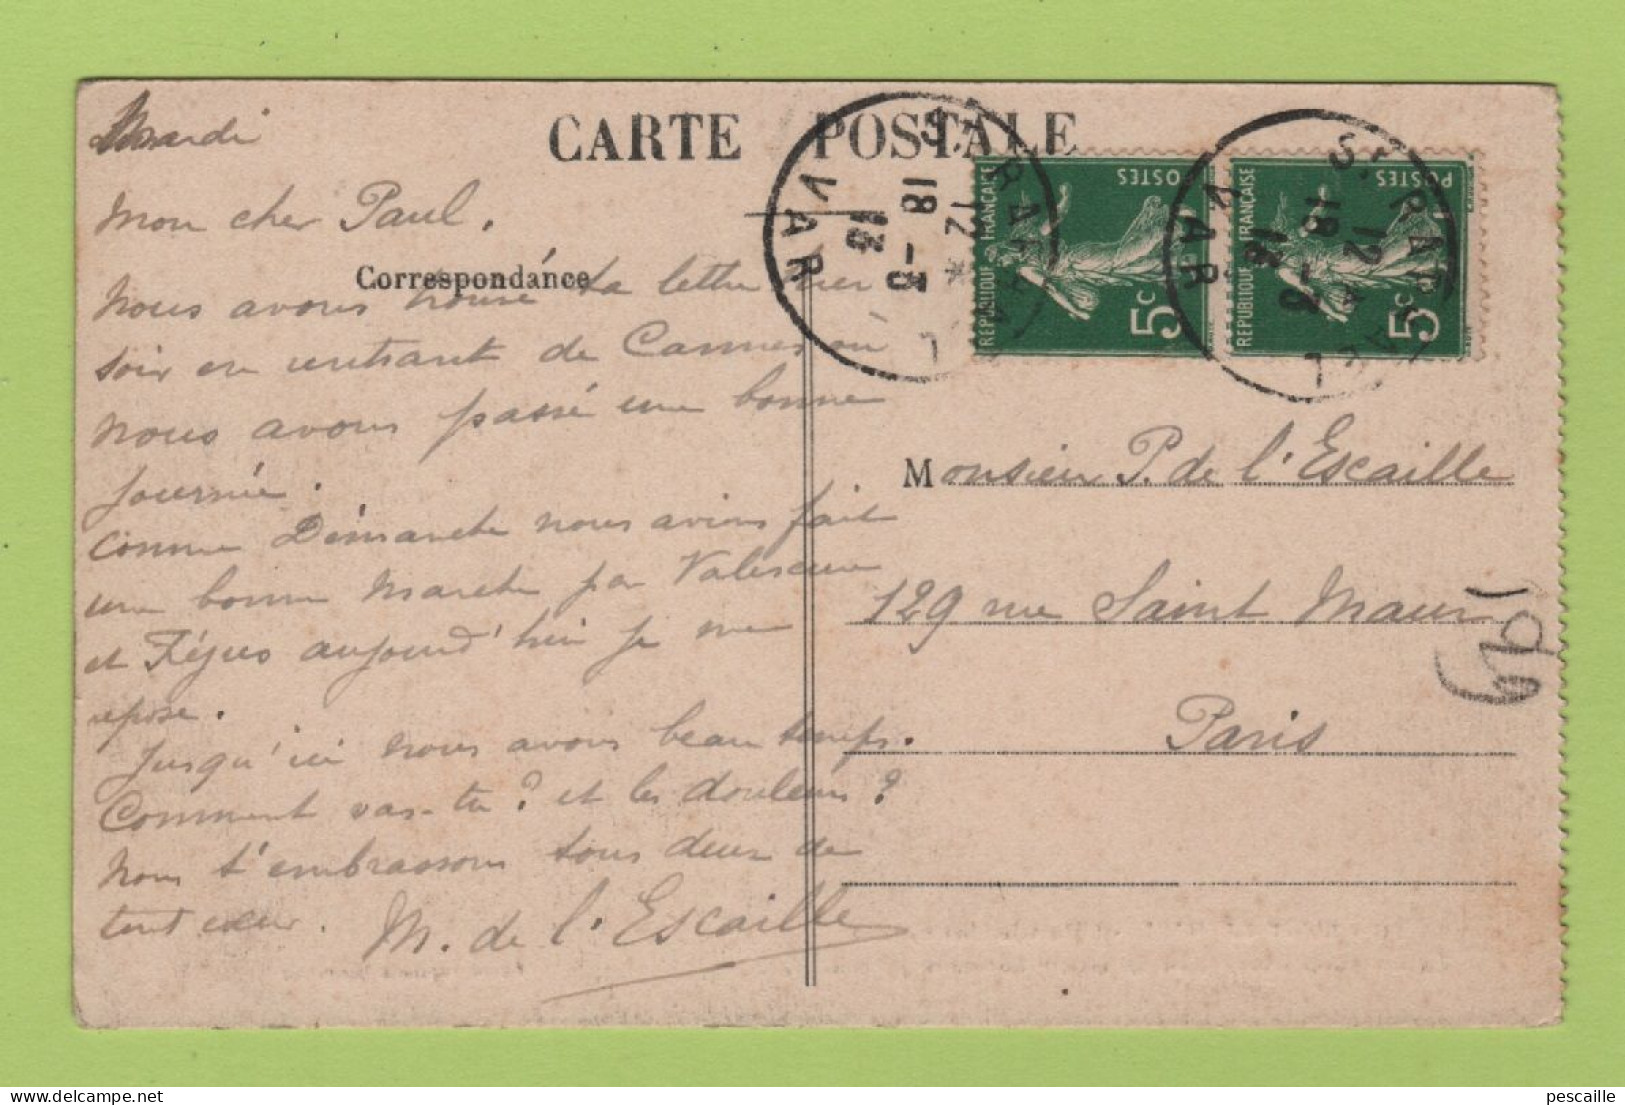 CARTE POSTALE
Mardi
Mon cher Paul,
Correspondance
Nous avons trouvé ta lettre hier
soir en rentrant de Cannes où
nous avons passé une bonne
journée.
Comme Dimanche nous avions fait
une bonne marche par Valescure
et Fréjus aujourd'hui je me
repose.
Jusqu'ici nous avons beau temps.
Comment vas-tu? et les douleurs?
Nous t'embrassons tous deux de
tout cœur.
M. de l'Escaille
ST RAPHAEL
12
18-3
13
VAR
REPUBLIQUE FRANÇAISE
POSTES
5c
ST RAPHAEL
12
18-3
13
VAR
REPUBLIQUE FRANÇAISE
POSTES
5c
Monsieur P. de l'Escaille
129 rue Saint Maur
Paris
https://www.delcampe.net
pescaille